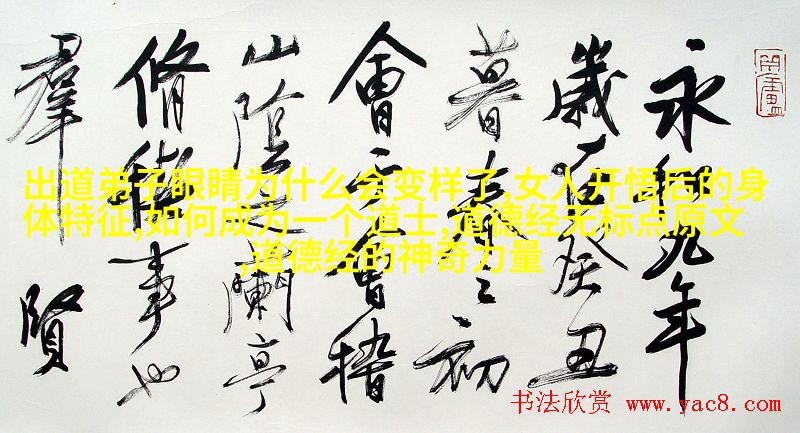 永和九年
歲在癸丑
暮春之初
會于會稽
山陰之蘭亭
脩稧事也
羣賢
出道弟子眼睛为什么会变样了,女人开悟后的身
体特征,如何成为一个道士,道德经无标点原文
,道德经的神奇力量
书法欣赏 www.yac8.com